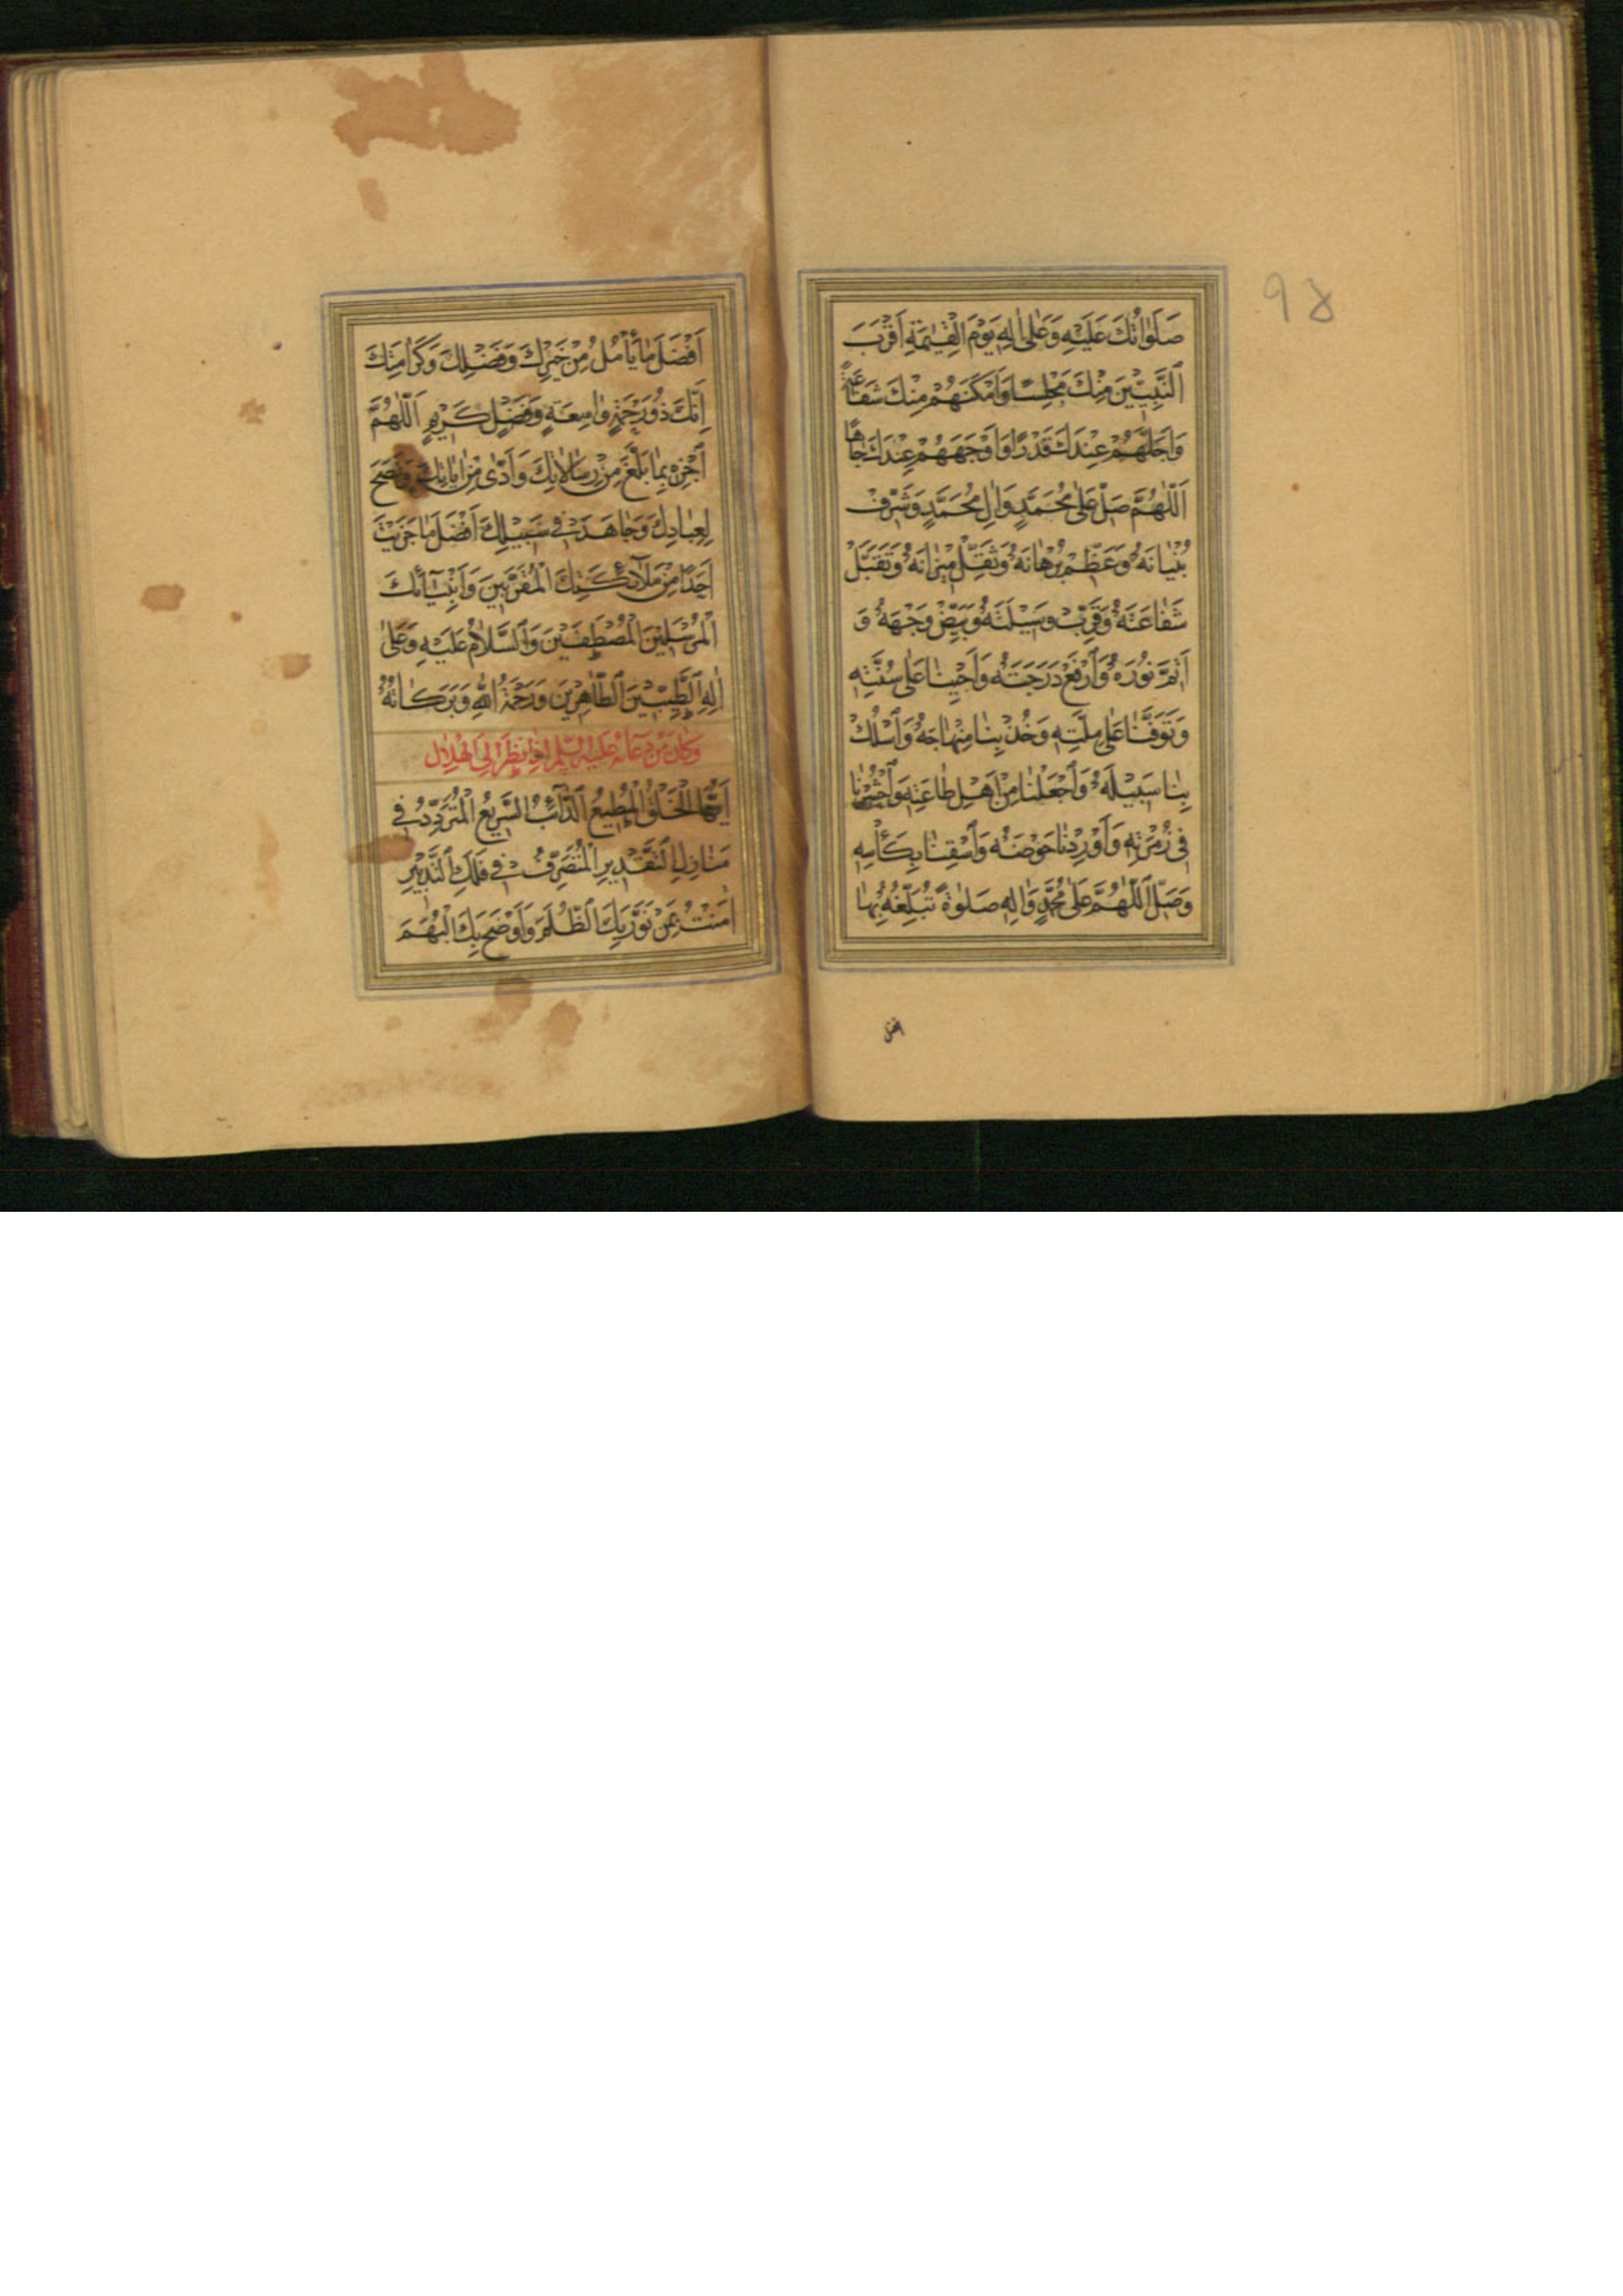 صَلَوٰاتُكَ عَلَيْهِ وَعَلىٰ اٰلِهِ يَوْمَ الْقِيٰمَةِ اَقْرَبَ
النَّبِيّٖينَ مِنْكَ مَجْلِسًا وَاَمْكَنَهُمْ مِنْكَ شَفَاعَةً
وَاَجَلَّهُمْ عِنْدَكَ قَدْرًا وَاَوْجَهَهُمْ عِنْدَكَ جَاهًا
اَللّٰهُمَّ صَلِّ عَلىٰ مُحَمَّدٍ وَاٰلِ مُحَمَّدٍ وَشَرِّفْ
بُنْيٰانَهُ وَعَظِّمْ بُرْهٰانَهُ وَثَقِّلْ مِيْزٰانَهُ وَتَقَبَّلْ
شَفٰاعَتَهُ وَقَرِّبْ وَسِيْلَتَهُ وَبَيِّضْ وَجْهَهُ وَ
اَتِمَّ نُوْرَهُ وَارْفَعْ دَرَجَتَهُ وَاَحْيِنٰا عَلىٰ سُنَّتِهِ
وَتَوَفَّنٰا عَلىٰ مِلَّتِهِ وَخُذْ بِنٰا مِنْهٰاجَهُ وَاسْلُكْ
بِنٰا سَبِيْلَهُ وَاجْعَلْنٰا مِنْ اَهْلِ طٰاعَتِهِ وَاحْشُرْنٰا
فِي زُمْرَتِهِ وَاَوْرِدْنٰا حَوْضَهُ وَاسْقِنٰا بِكَأْسِهِ
وَصَلِّ اللّٰهُمَّ عَلىٰ مُحَمَّدٍ وَاٰلِهِ صَلٰوةً تُبَلِّغُهُ بِهٰا
۹۵
اَفْضَلَ مٰا يَأْمُلُ مِنْ خَيْرِكَ وَفَضْلِكَ وَكَرٰامَتِكَ
اِنَّكَ ذُوْ رَحْمَةٍ وٰاسِعَةٍ وَفَضْلٍ كَرِيْمٍ اَللّٰهُمَّ
اَجْزِهِ بِمٰا بَلَّغَ مِنْ رِسٰالاٰتِكَ وَاَدّٰى مِنْ اٰيٰاتِكَ وَنَصَحَ
لِعِبٰادِكَ وَجٰاهَدَ فِي سَبِيْلِكَ اَفْضَلَ مٰا جَزَيْتَ
اَحَدًا مِنْ مَلاٰۤئِكَتِكَ الْمُقَرَّبِيْنَ وَاَنْبِيٰۤائِكَ
الْمُرْسَلِيْنَ الْمُصْطَفَيْنَ وَالسَّلاٰمُ عَلَيْهِ وَعَلىٰ
اٰلِهِ الطَّيِّبِيْنَ الطّٰاهِرِيْنَ وَرَحْمَةُ اللّٰهِ وَبَرَكٰاتُهُ
وَكَانَ مِنْ دُعَائِهِ عَلَيْهِ السَّلَمُ اِذَا نَظَرَ اِلَى الْهِلَالِ
اَيُّهَا الْخَلْقُ الْمُطِيْعُ الدّٰۤائِبُ السَّرِيْعُ الْمُتَرَدِّدُ فِي
مَنٰازِلِ التَّقْدِيْرِ الْمُتَصَرِّفُ فِي فَلَكِ التَّدْبِيْرِ
اٰمَنْتُ بِمَنْ نَوَّرَ بِكَ الظُّلَمَ وَاَوْضَحَ بِكَ الْبُهَمَ